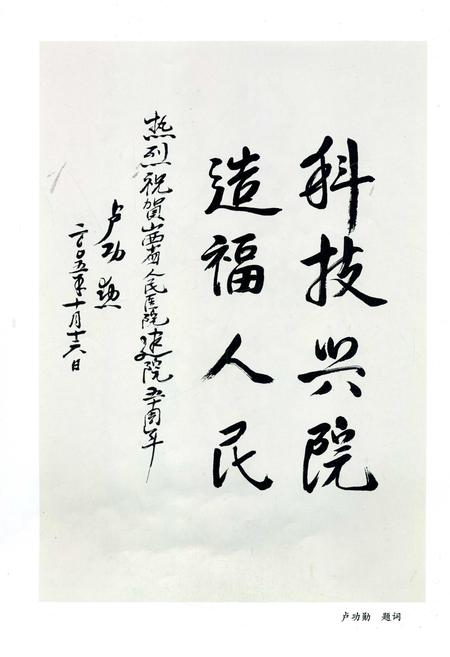 科技兴院
造福人民
热烈祝贺山西省人民医院建院五十周年
卢功勋
二〇〇五年十月十六日
卢功勋 题词